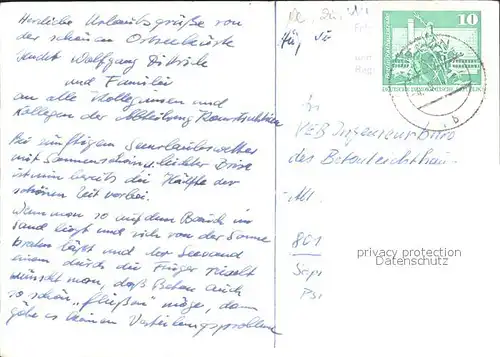 Herzliche Urlaubsgrüße von
der schönen Ostseeküste
sendet Wolfgang Dietrich
und Familie
an alle Kolleginnen und
Kollegen der Abteilung Konstruktion
Bei zünftigem Seeurlaubswetter
mit Sonnenschein u. leichter Brise
ist nun bereits die Hälfte der
schönen Zeit vorbei.
Wenn man so auf dem Bauch im
Sand liegt und sich von der Sonne
braten läßt und der Seesand
einem durch die Finger rieselt
wünscht man, daß Beton auch
so schön „fließen" möge, dann
gäbe es keinen Verteilungsprobleme
10
DEUTSCHE DEMOKRATISCHE REPUBLIK
b
VEB Ingenieurbüro
des Betonleichtbau
Abt.
801
privacy protection
Datenschutz